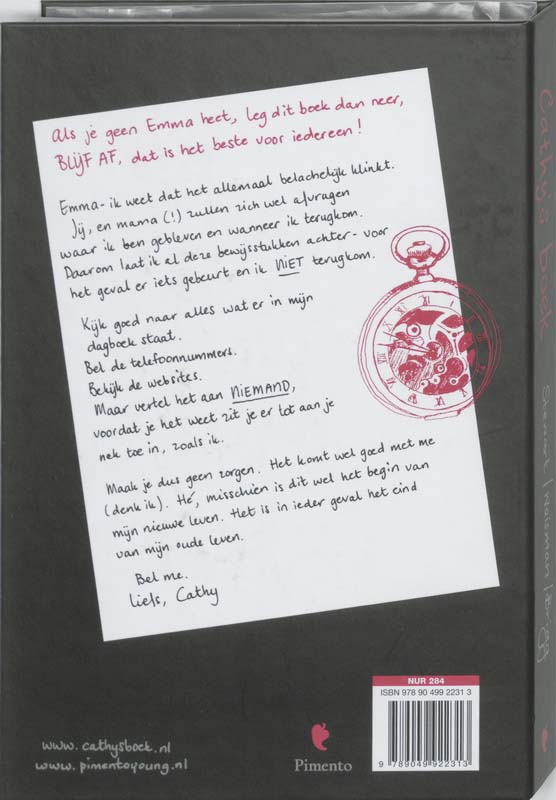 Als je geen Emma heet, leg dit boek dan neer,
BLIJF AF, dat is het beste voor iedereen!
Emma - ik weet dat het allemaal belachelijk klinkt.
Jij, en mama (!) zullen zich wel afvragen
waar ik ben gebleven en wanneer ik terugkom.
Daarom laat ik al deze bewijsstukken achter - voor
het geval er iets gebeurt en ik NIET terugkom.
Kijk goed naar alles wat er in mijn
dagboek staat.
Bel de telefoonnummers.
Bekijk de websites.
Maar vertel het aan NIEMAND,
voordat je het weet zit je er tot aan je
nek toe in, zoals ik.
Maak je dus geen zorgen. Het komt wel goed met me
(denk ik). Hé, misschien is dit wel het begin van
mijn nieuwe leven. Het is in ieder geval het eind
van mijn oude leven.
Bel me.
Liefs, Cathy
www.cathysboek.nl
www.pimentoyoung.nl
Pimento
NUR 284
ISBN 978 90 499 2231 3
9 789049 922313
Cathy's boek